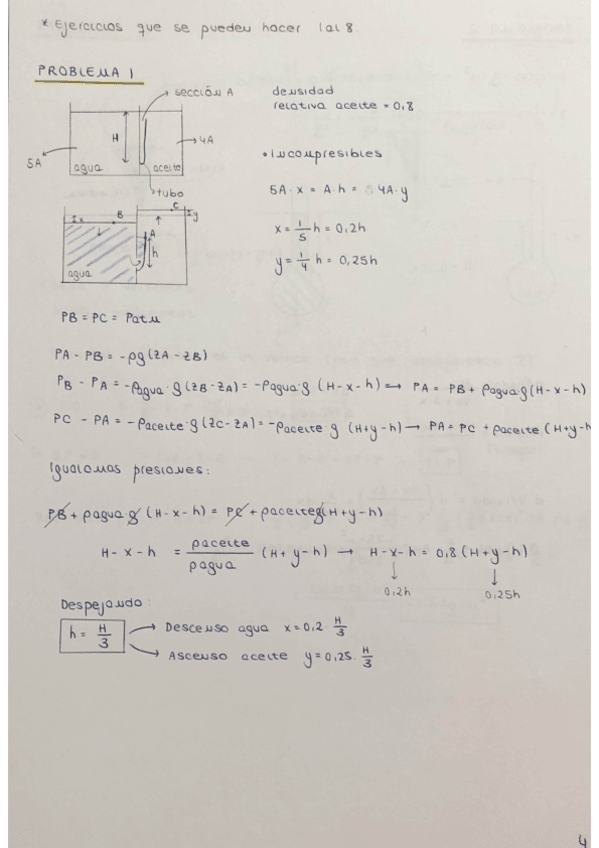 * Ejercicios que se pueden hacer 1al 8.
PROBLEMA 1
sección A
H
4A
5A
agua
aceite
tubo
densidad
relativa aceite = 0,8
• Incompresibles
5A · x = A · h = 4A · y
x = 1/5 h = 0,2h
y = 1/4 h = 0,25h
x
B
C
y
A
h
agua
PB = PC = Patm
PA - PB = -ρg (ZA - ZB)
PB - PA = -ρagua · g (ZB - ZA) = -ρagua · g (H - x - h) ⟹ PA = PB + ρagua · g (H - x - h)
PC - PA = -ρaceite · g (ZC - ZA) = -ρaceite · g (H + y - h) → PA = PC + ρaceite (H + y - h
Igualamos presiones:
PB + ρagua · g (H - x - h) = PC + ρaceite g (H + y - h)
H - x - h = ρaceite/ρagua (H + y - h) → H - x - h = 0,8 (H + y - h)
0,2h
0,25h
Despejando:
h = H/3
Descenso agua x = 0,2 · H/3
Ascenso aceite y = 0,25 · H/3
4